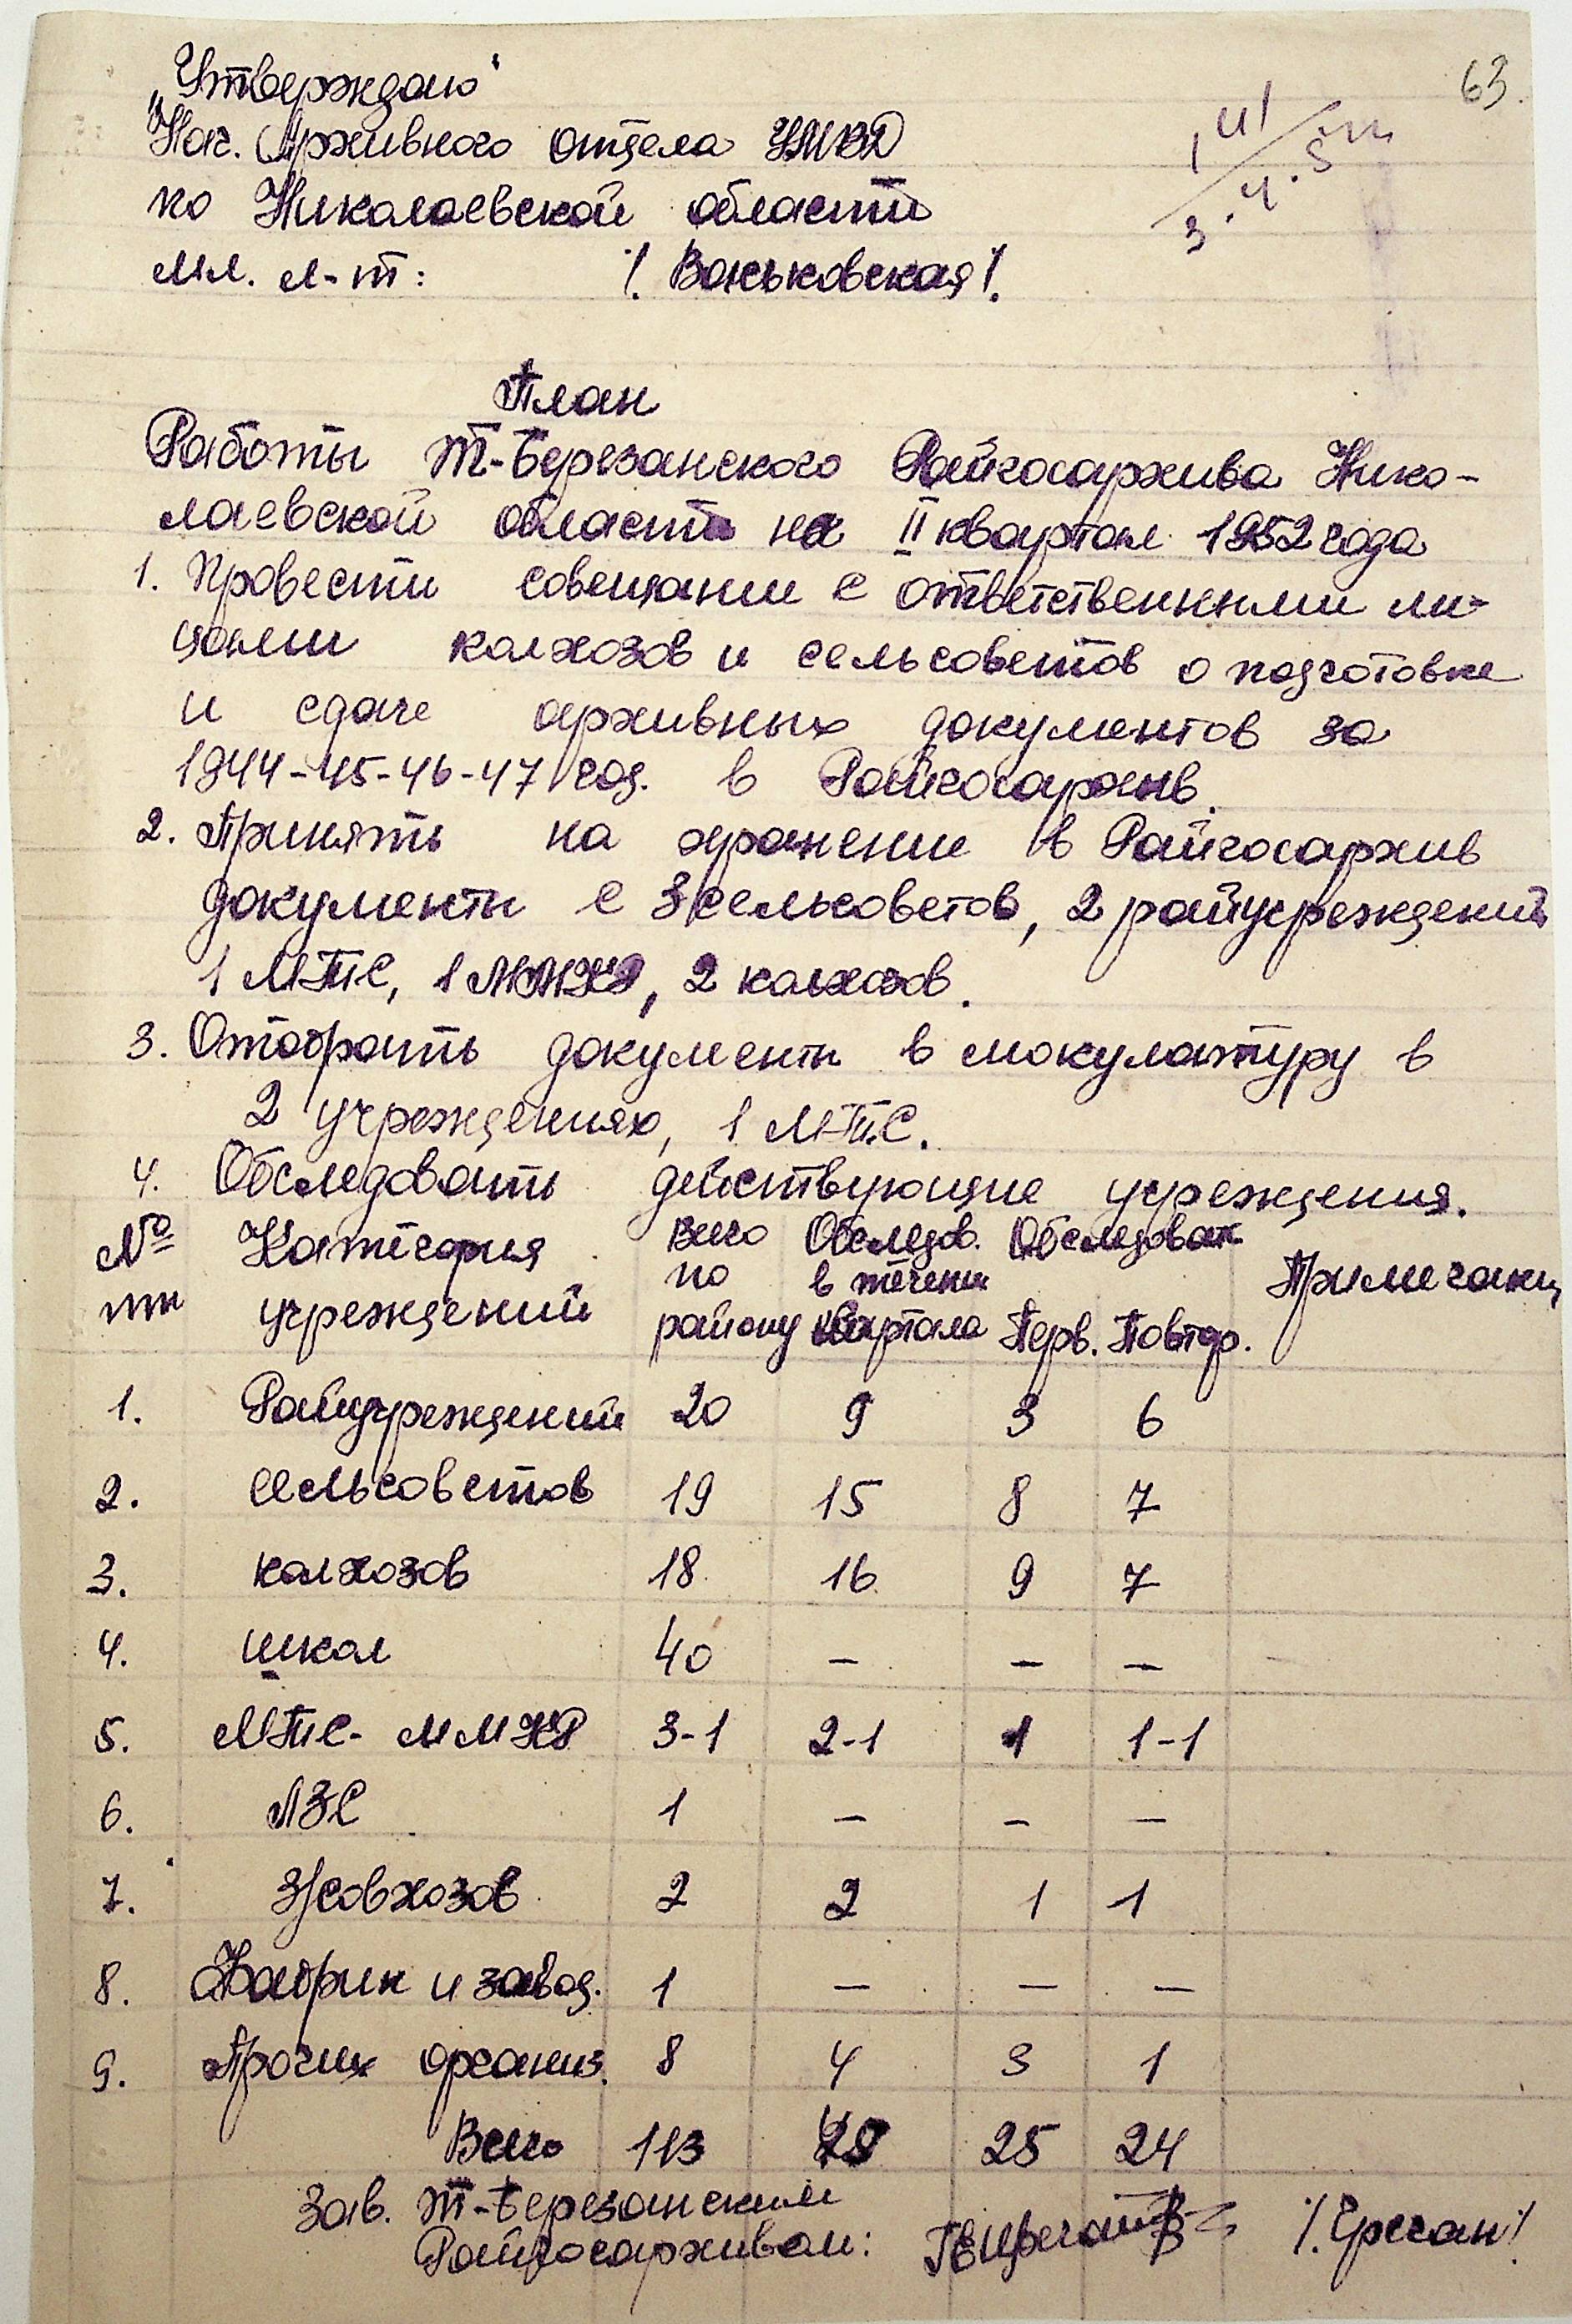 63.
„Утверждаю"
Нач. Архивного отдела УМВД
по Николаевской области
мл. л-т: /. Ваньковская/.
3.4.5
План
Работы Т-Березанского Райгосархива Нико-
лаевской области на II квартал 1952 года
1. Провести совещание с ответственными ли-
цами колхозов и сельсоветов о подготовке
и сдаче архивных документов за
1944-45-46-47 год. в Райгосархив.
2. Принять на хранение в Райгосархив
документы с 3 сельсоветов, 2 райучреждений
1 МТС, 1 , 2 колхозов.
3. Отобрать документы в мокулатуру в
2 учреждениях, 1 МТС.
4. Обследовать действующие учреждения.
№ Категория Всего Обследов. Обследован
пп учреждений по району в течении квартала Перв. Повтор. Примечание
1. Райучреждений 20 9 3 6
2. Сельсоветов 19 15 8 7
3. колхозов 18 16 9 7
4. школ 40 – – –
5. МТС- 3-1 2-1 1 1-1
6. ЛЗС 1 – – –
7. З/совхозов 2 2 1 1
8. Фабрик и завод. 1 – – –
9. Прочих организ. 8 4 3 1
Всего 113 25 24
Зав. Т-Березанским
Райгосархивом: /. Грегач/